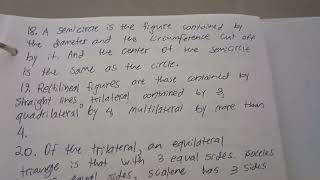 18. A semicircle is the figure contained by
the diameter and the circumference cut off
by it. And the center of the semicircle
is the same as the circle.
19. Rectilineal figures are those contained by
straight lines, trilateral contained by 3,
quadrilateral by 4 multilateral by more than
4.
20. Of the trilateral, an equilateral
triangle is that with 3 equal sides.
equal sides, scalene has 3 sides